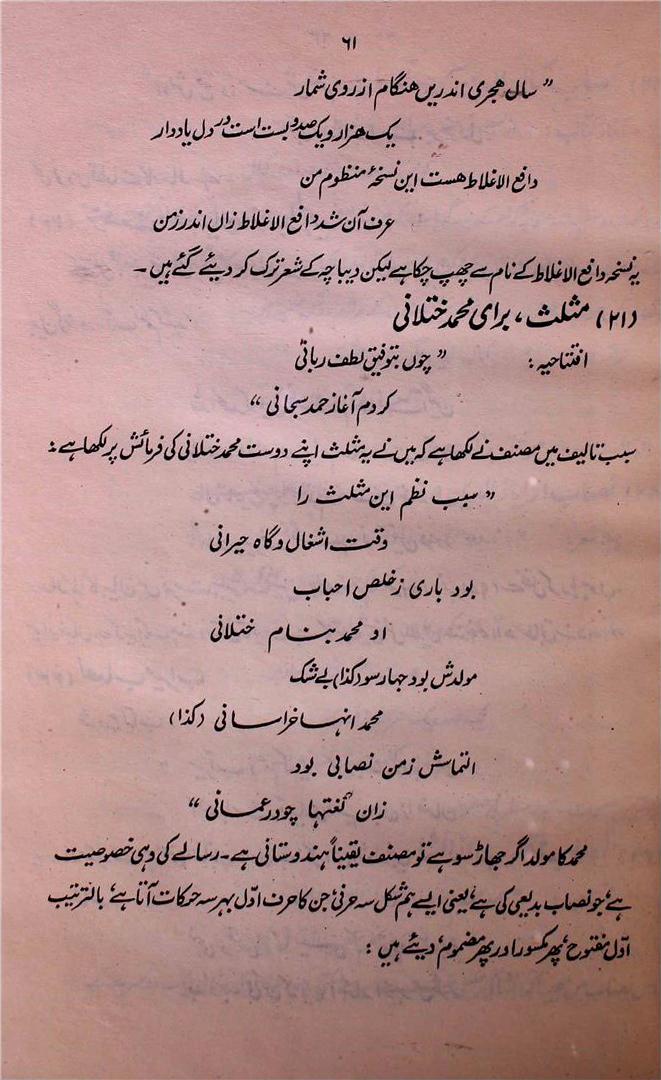 ۶۱
” سال ہجری اندریں ہنگام از روی شمار
یک ہزار و یک صد و بست است در دل یاد دار
دافع الاغلاط ہست این نسخۂ منظوم من
عرف آن شد دافع الاغلاط زان اندر زمن
یہ نسخہ دافع الاغلاط کے نام سے چھپ چکا ہے لیکن دیباچہ کے شعر ترک کر دیئے گئے ہیں ۔
(۲۱) مثلث ، برای محمد ختلانی
افتتاحیہ : ” چوں بتوفیق لطف ربانی
کردم آغاز حمد سبحانی “
سبب تالیف میں مصنف نے لکھا ہے کہ میں نے یہ مثلث اپنے دوست محمد ختلانی کی فرمائش پر لکھا ہے :
” سبب نظم این مثلث را
وقت اشغال و گاہ حیرانی
بود باری ز خلص احباب
او محمد بنام ختلانی
مولدش بود جہار سو (کذا) بے شک
محمد انہا خراسانی (کذا)
التماسش ز من نصابی بود
زان لغتہا چو در عمانی “
محمد کا مولد اگر جھاڑسو ہے تو مصنف یقیناً ہندوستانی ہے ۔ رسالے کی وہی خصوصیت
ہے ، جو نصاب بدیعی کی ہے ، یعنی ایسے ہم شکل سہ حرفی ، جن کا حرف اوّل بہر سہ حرکات آتا ہے ، بالترتیب
اوّل مفتوح ، پھر مکسور اور پھر مضموم ، دیئے ہیں :